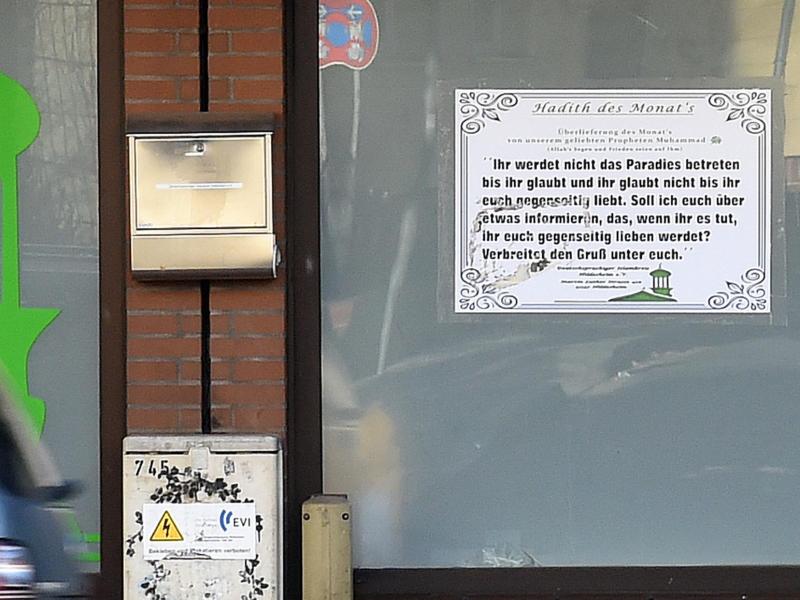 Hadith des Monat's
Überlieferung des Monat's
von unserem geliebten Propheten Muhammad
(Allah's Segen und Frieden seien auf Ihm)
"Ihr werdet nicht das Paradies betreten
bis ihr glaubt und ihr glaubt nicht bis ihr
euch gegenseitig liebt. Soll ich euch über
etwas informieren, das, wenn ihr es tut,
ihr euch gegenseitig lieben werdet?
Verbreitet den Gruß unter euch."
Deutschsprachiger Islamkreis
Hildesheim e.V.
745
EVI
Bekleben und Plakatieren verboten!